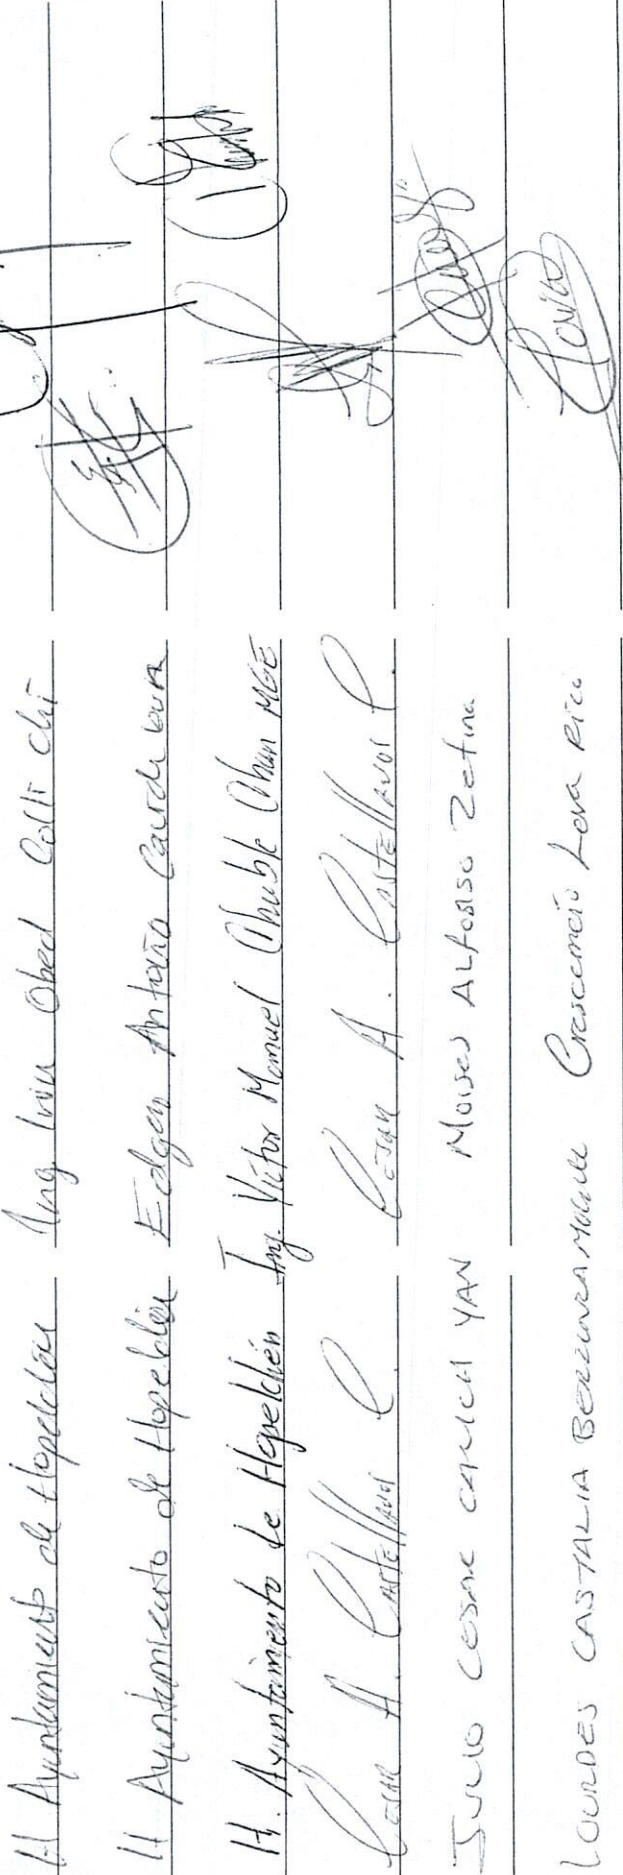 H Ayuntamiento de Hopelchén Ing Iván Obed Colli Chi
H Ayuntamiento de Hopelchén Edgar Antonio
H. Ayuntamiento de Hopelchén Ing. Victor Manuel Chuble Chan MGE
Cesar A. Castellanos C. Cesar A. Castellanos C.
JULIO CESAR CAUICH YAN MOISES ALFONSO Zetina
LOURDES CASTALIA BERZUNZA Crescencio Lova Rico